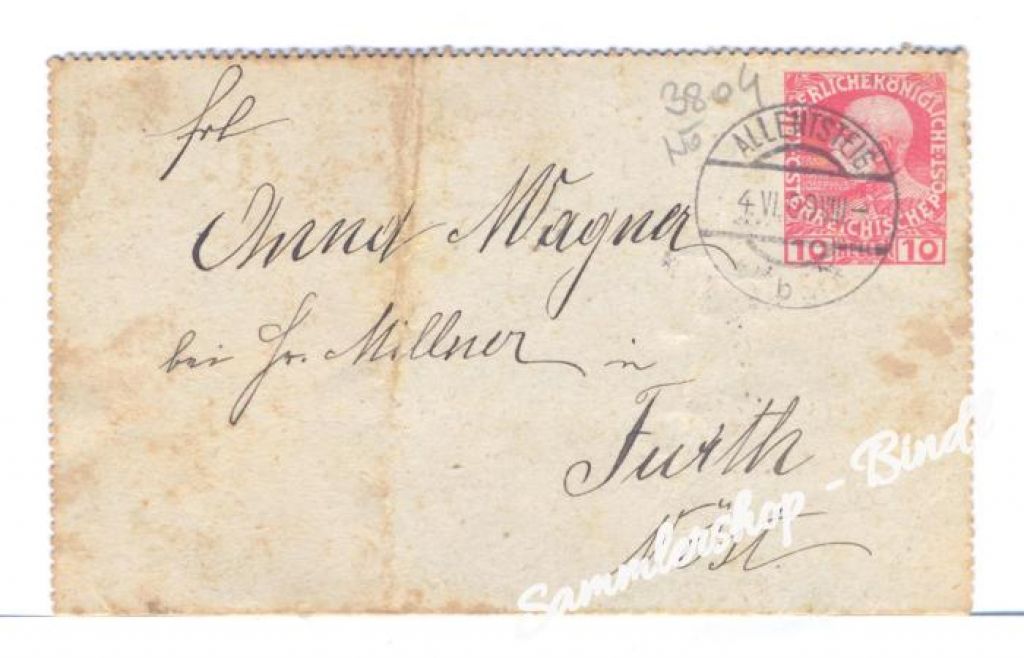 3804
NÖ
ALLENTSTEIG
4.VI.
b
KAISERLICHE KÖNIGLICHE
ÖSTERREICHISCHE POST
10 HELLER 10
Frl
Anna Wagner
bei Hr. Millner in
Furth
N.öst.
Sammlershop - Bindl